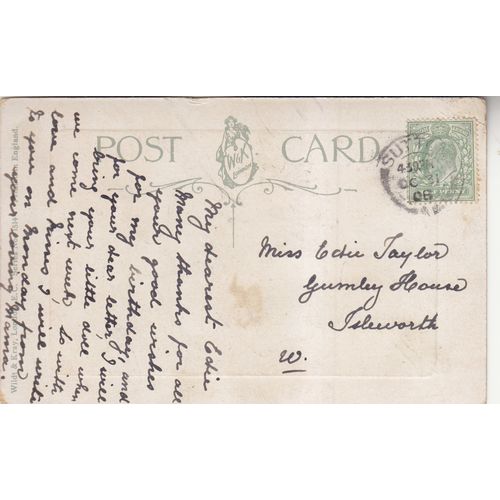 POST CARD
W&K
London
SUTT
OC
08
My dearest Edie
Many thanks for all
your good wishes
for my birthday, and
for your dear letter, I will
bring your little doll when
we come next week, so with
love and kisses I will write
to you on Sunday
your loving Mama.
Miss Edie Taylor
Gumley House
Isleworth
W.
Wildt & Kray, London, E.C.
in England.